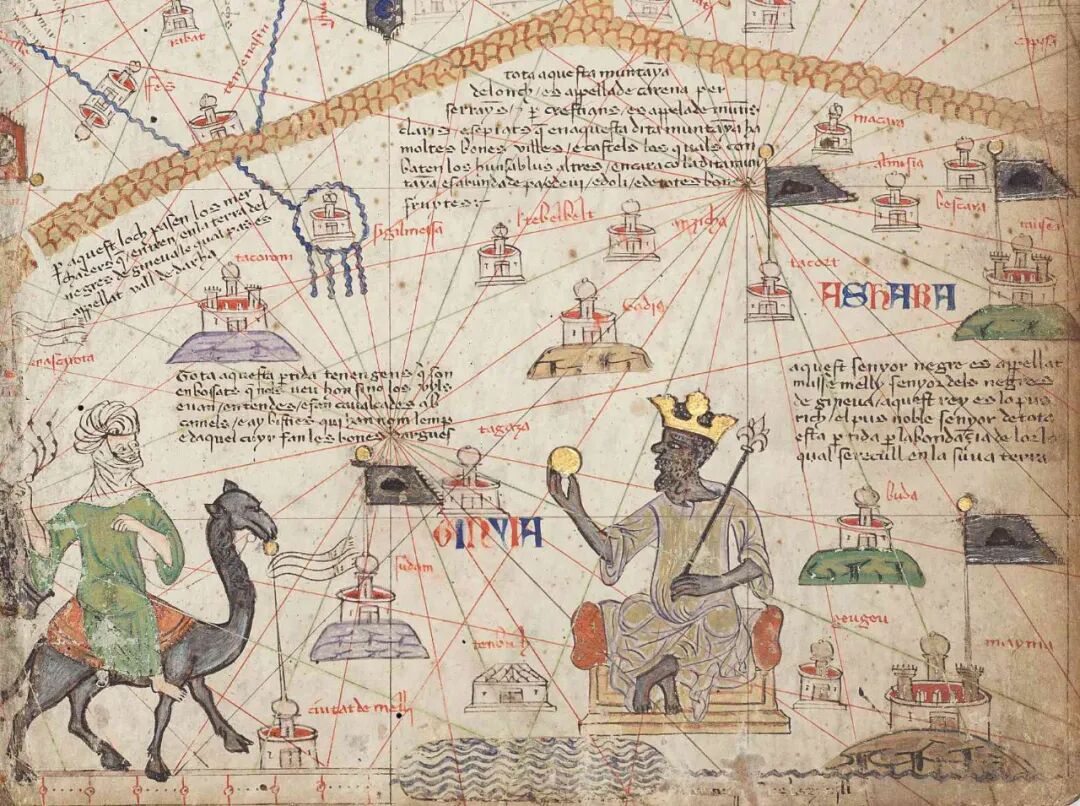 ribat
fes
tota aquesta muntaya
de lonch / es appellade carena per
serrayns / & per crestians / es apelade muntis
claris / e sepiats q en aquesta dita muntaya ha
moltes bones villes / e castels los quals com
baten los huns ab los altres / encara con la dita mun
taya es abunda de pa e de vi / e doli / e de totes bones
fruytes
macara
almisia
bescara
p aquest loch pasen los mer
chaders q entren en la terra del
negres de gineva lo qual pas es
appellat vall de darha
sigilmessa
tacoroni
tacort
ASHARA
Tota aquesta ptida tenen gens q son
enbosats q nols veu hom sino los uyls
e van / en tendes / e fan cavalcades ab
camels / e ay bisties qui han nom lemp
e daquel cuyr fan les bones dargues
aquest senyor negre es appellat
musse melly senyor dels negres
de gineva / aquest rey es lo pus
rich / el pus noble senyor de tota
esta ptida p labondazia de lor lo
qual se recull en la suva terra
tagaza
GINYIA
buda
sudam
tenbuch
geugeu
mayma
ciutat de melli